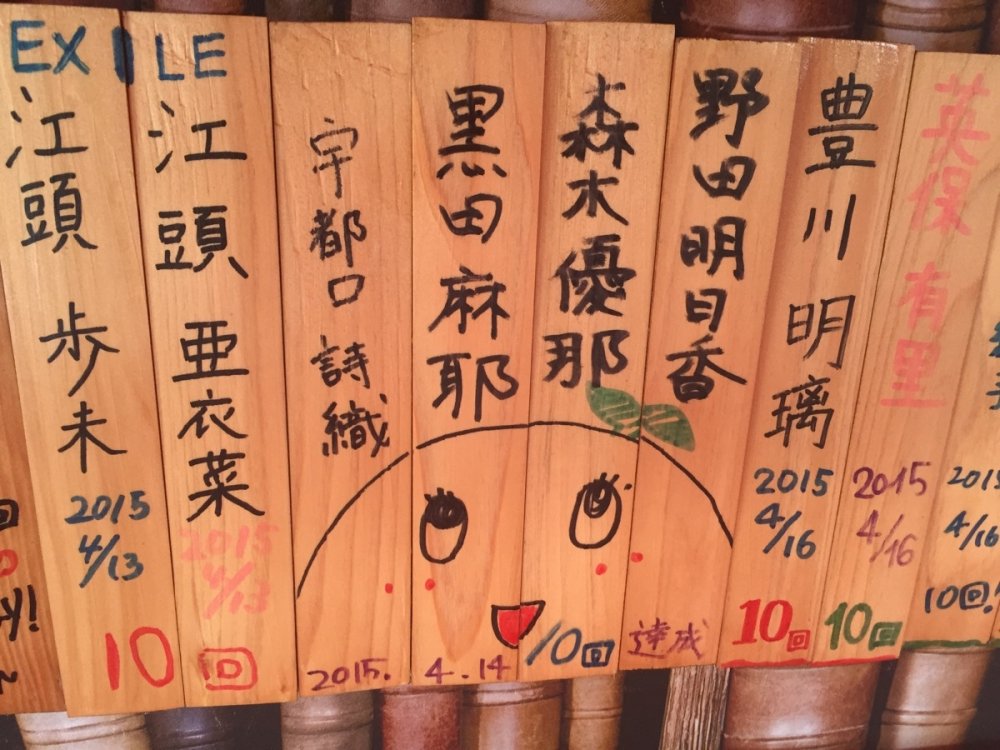 EXILE
江頭 歩未
2015
4/13
江頭 亜衣菜
2015
4/13
10回
宇都口 詩織
黒田麻耶
森木優那
野田明日香
2015. 4.14
10回
達成
豊川 明璃
2015
4/16
10回
英保 有里
2015
4/16
10回
2015
4/16
10回!
y!